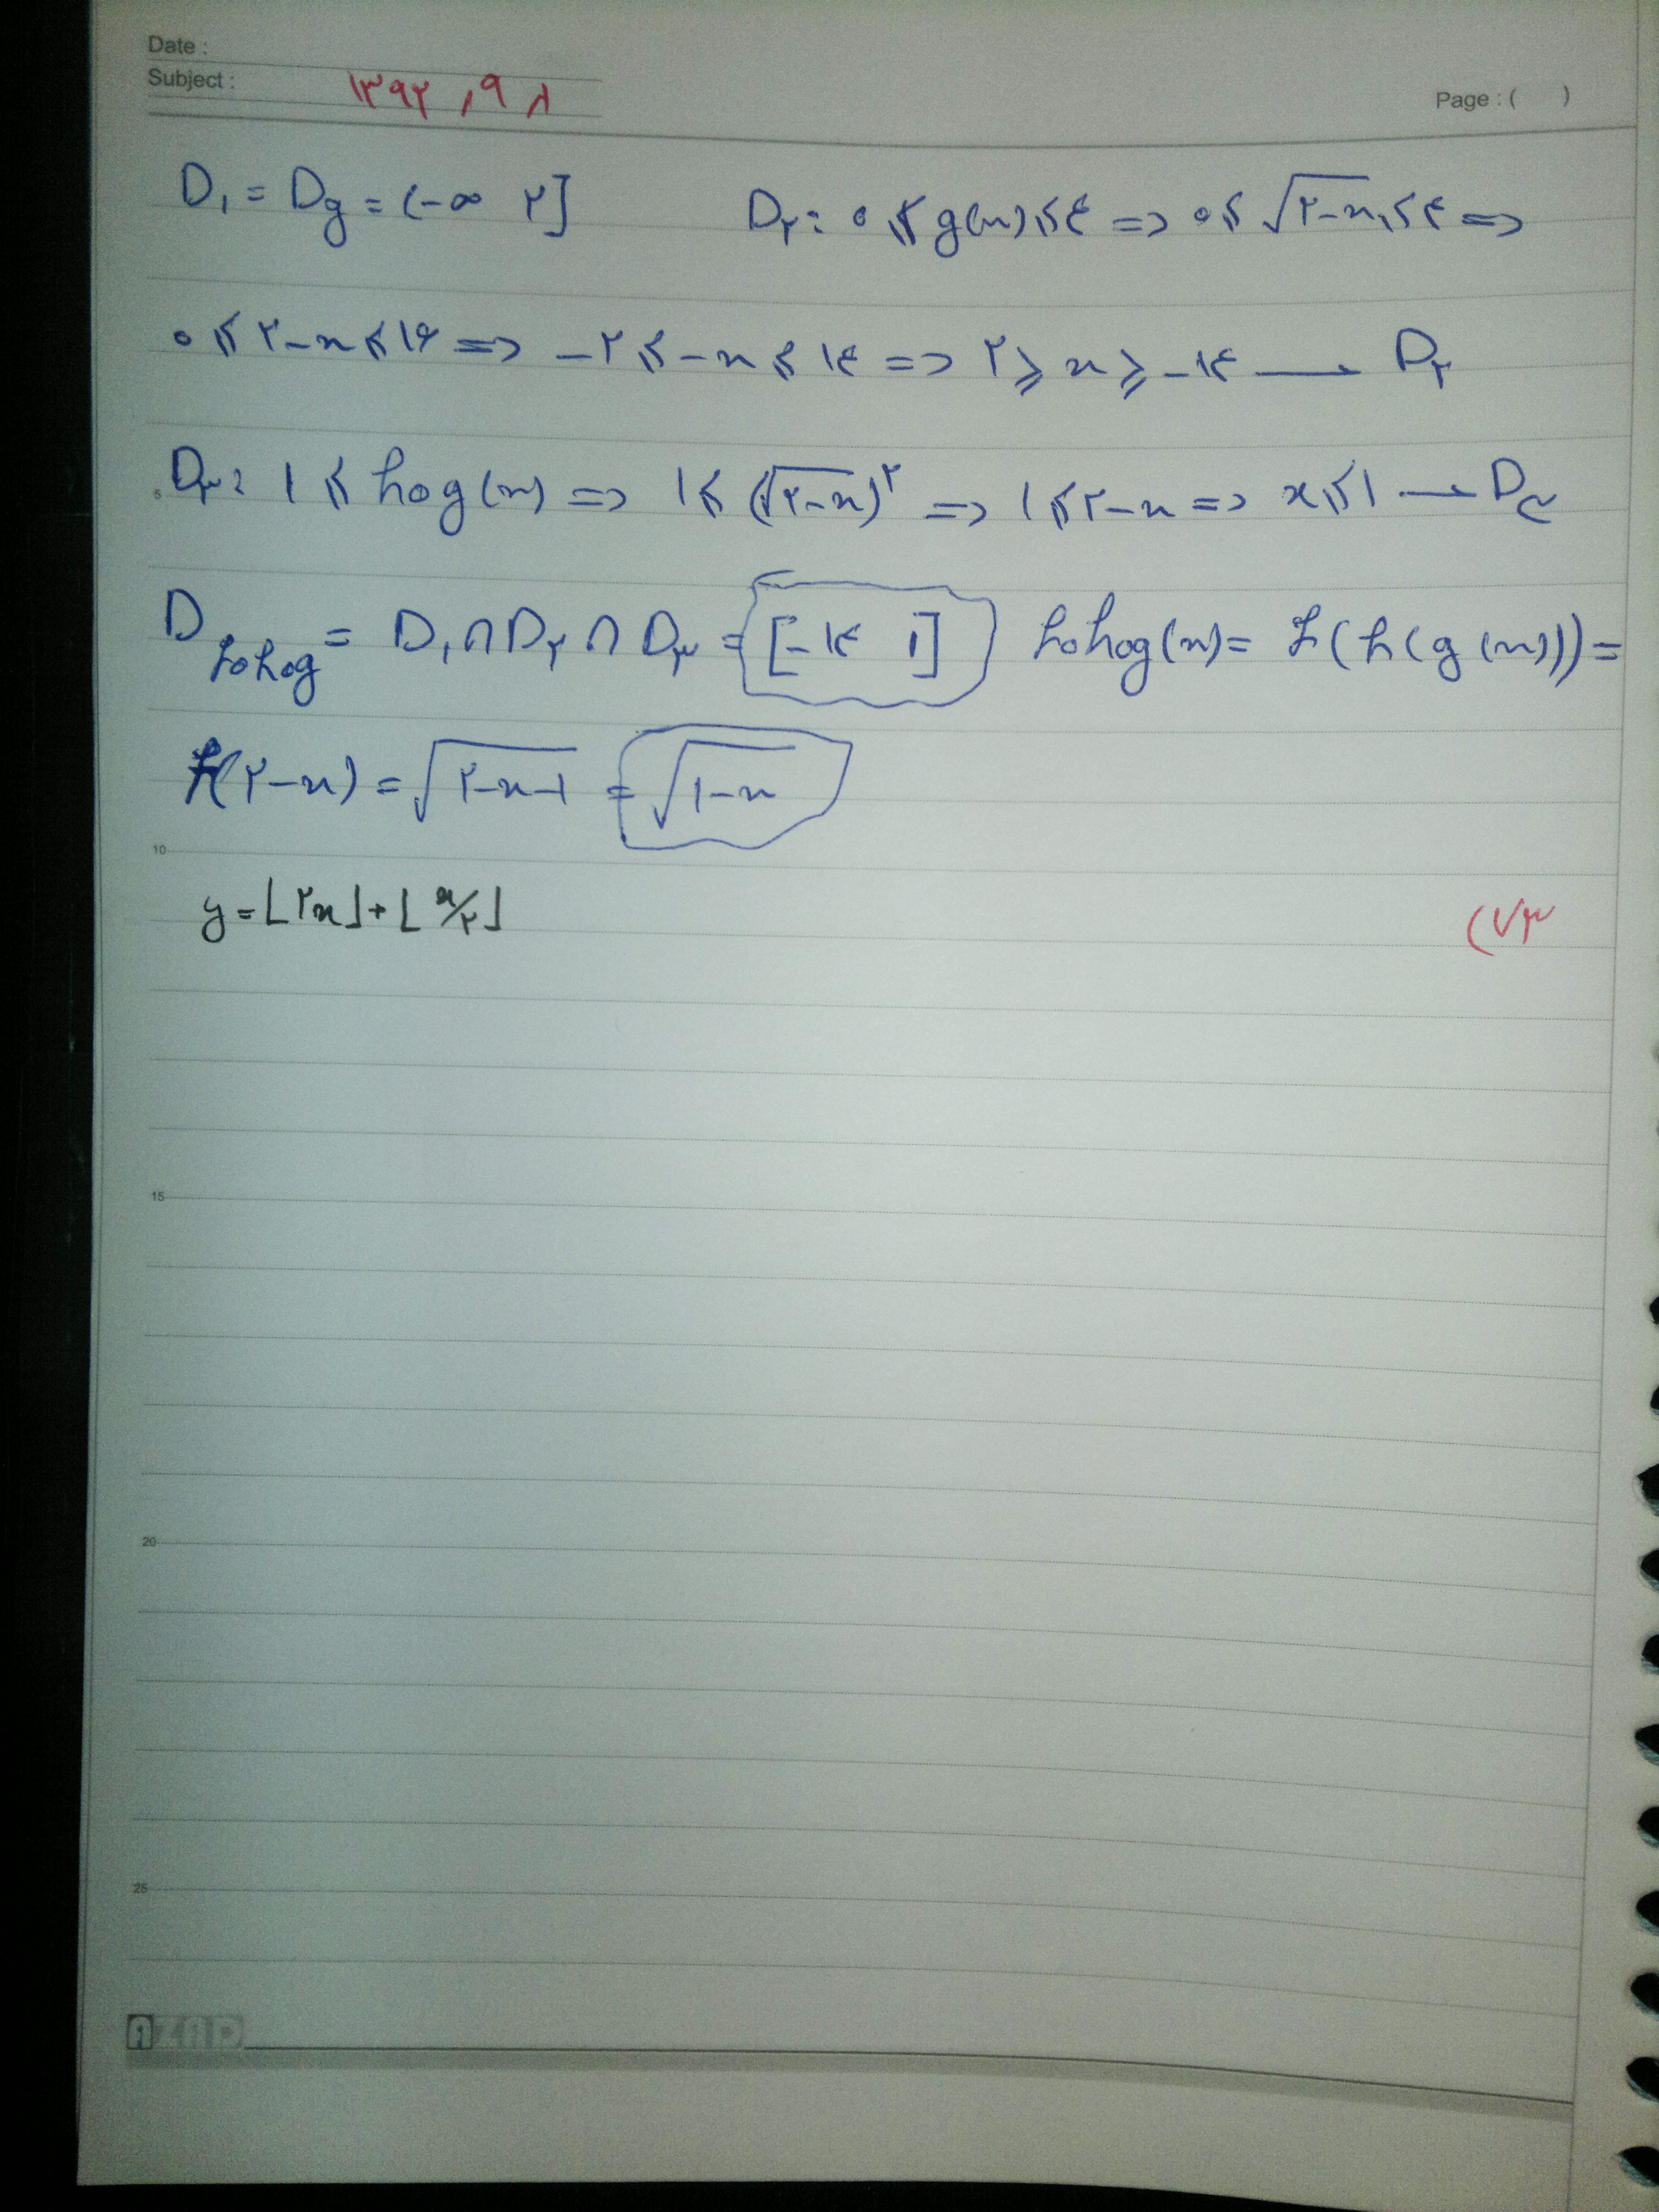 Date :
Subject : ۱۳۹۲ ,۹ ,۸
Page : ( )
D۱ = Dg = (-∞ ۲] D۲: ۰ ≤ g(x) ≤ ۴ => ۰ ≤ √(۲-x) ≤ ۴ =>
۰ ≤ ۲-x ≤ ۱۶ => -۲ ≤ -x ≤ ۱۴ => ۲ ≥ x ≥ -۱۴ → D۲
5 D۳: ۱ ≤ hog(x) => ۱ ≤ (√(۲-x))^۲ => ۱ ≤ ۲-x => x ≤ ۱ → D۳
D fohog = D۱ ∩ D۲ ∩ D۳ = [-۱۴ ۱] fohog(x) = f(h(g(x))) =
f(۲-x) = √(۲-x-۱) = √(۱-x)
10
y = ⌊۲x⌋ + ⌊x/۲⌋ (۷۳
15
20
25
AZAD